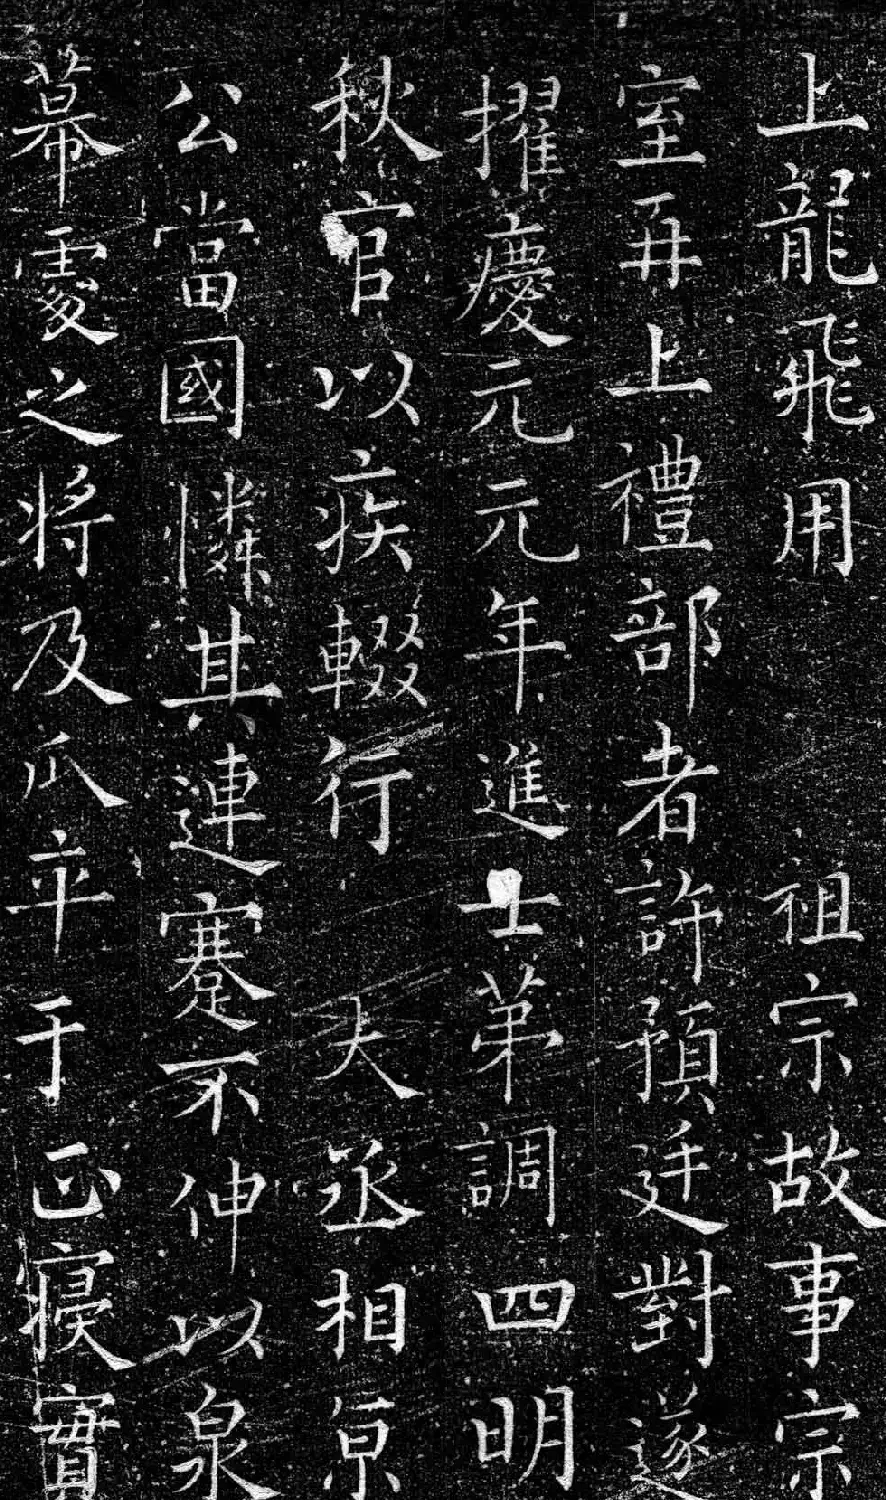 上龍飛用祖宗故事宗
室再上禮部者許預廷對遂
擢慶元元年進士第調四明
秋官以疾輟行大丞相京
公當國憐其連蹇不伸以泉
幕處之將及瓜卒于正寝實